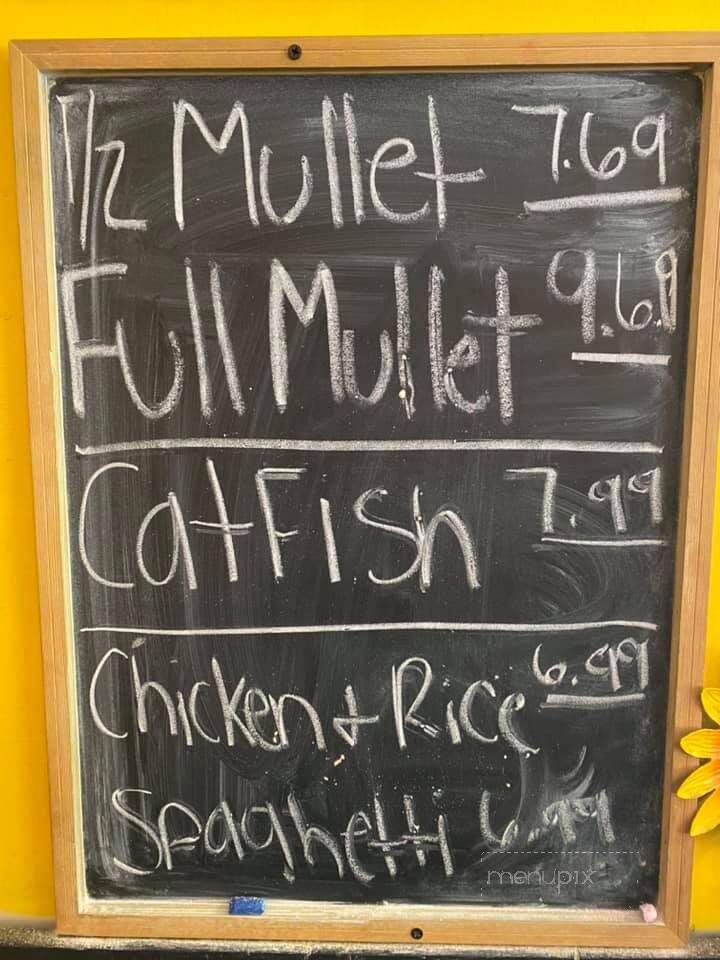 1/2 Mullet 7.69
Full Mullet 9.69
CatFish 7.99
Chicken + Rice 6.99
Spaghetti 6.99
menupix